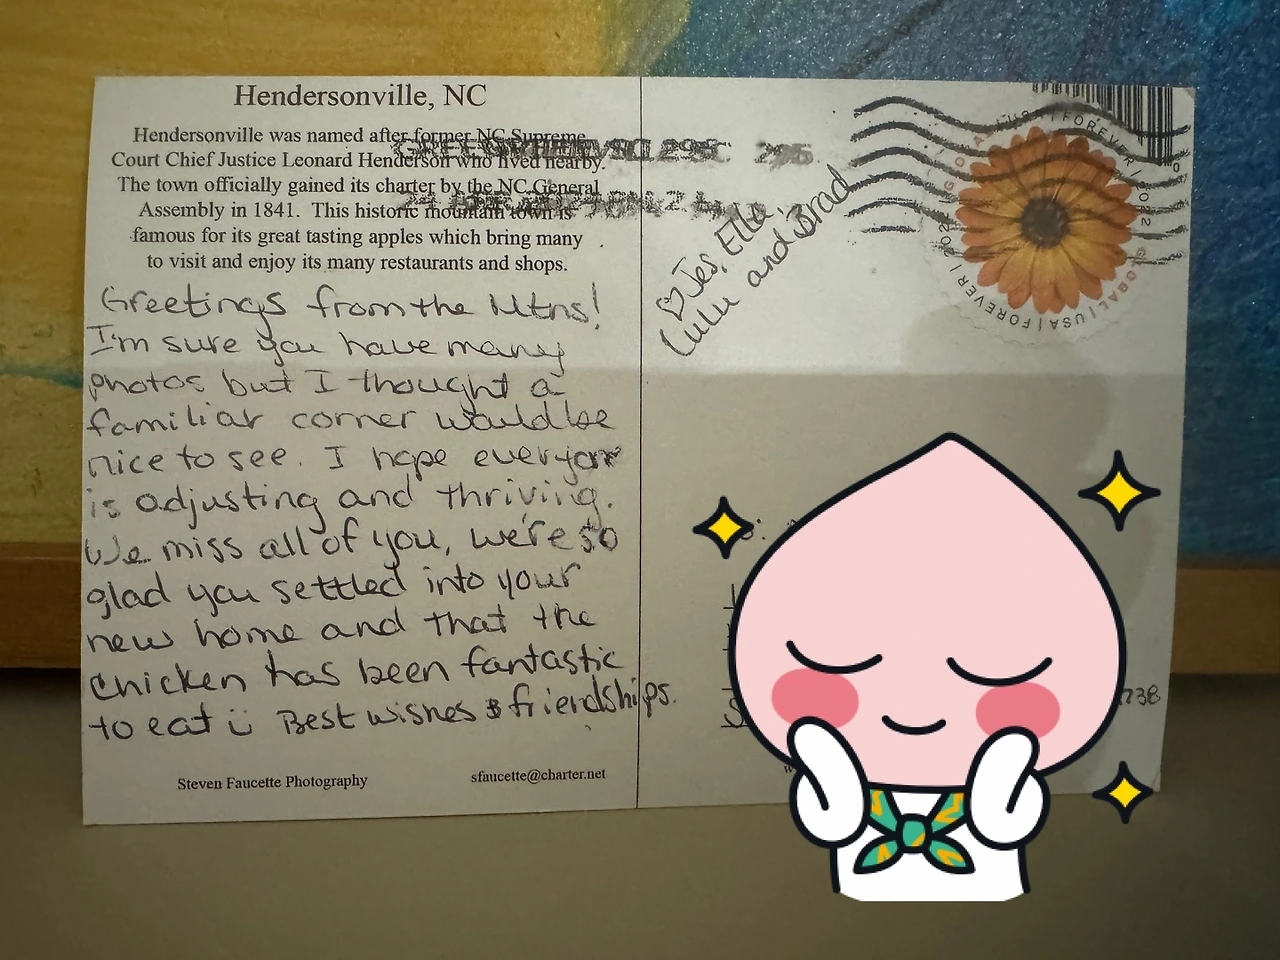 Hendersonville, NC
Hendersonville was named after former NC Supreme
Court Chief Justice Leonard Henderson who lived nearby.
The town officially gained its charter by the NC General
Assembly in 1841. This historic mountain town is
famous for its great tasting apples which bring many
to visit and enjoy its many restaurants and shops.
Greetings from the Mtns!
I'm sure you have many
photos but I thought a
familiar corner would be
nice to see. I hope everyone
is adjusting and thriving.
We miss all of you, we're so
glad you settled into your
new home and that the
chicken has been fantastic
to eat ü Best wishes & friendships.
Steven Faucette Photography
sfaucette@charter.net
♡ Jes, Ella,
Lulu and Brad
GREENVILLE SC 296
GLOBAL | USA | FOREVER | 2022
GLOBAL | USA | FOREVER | 2022
738